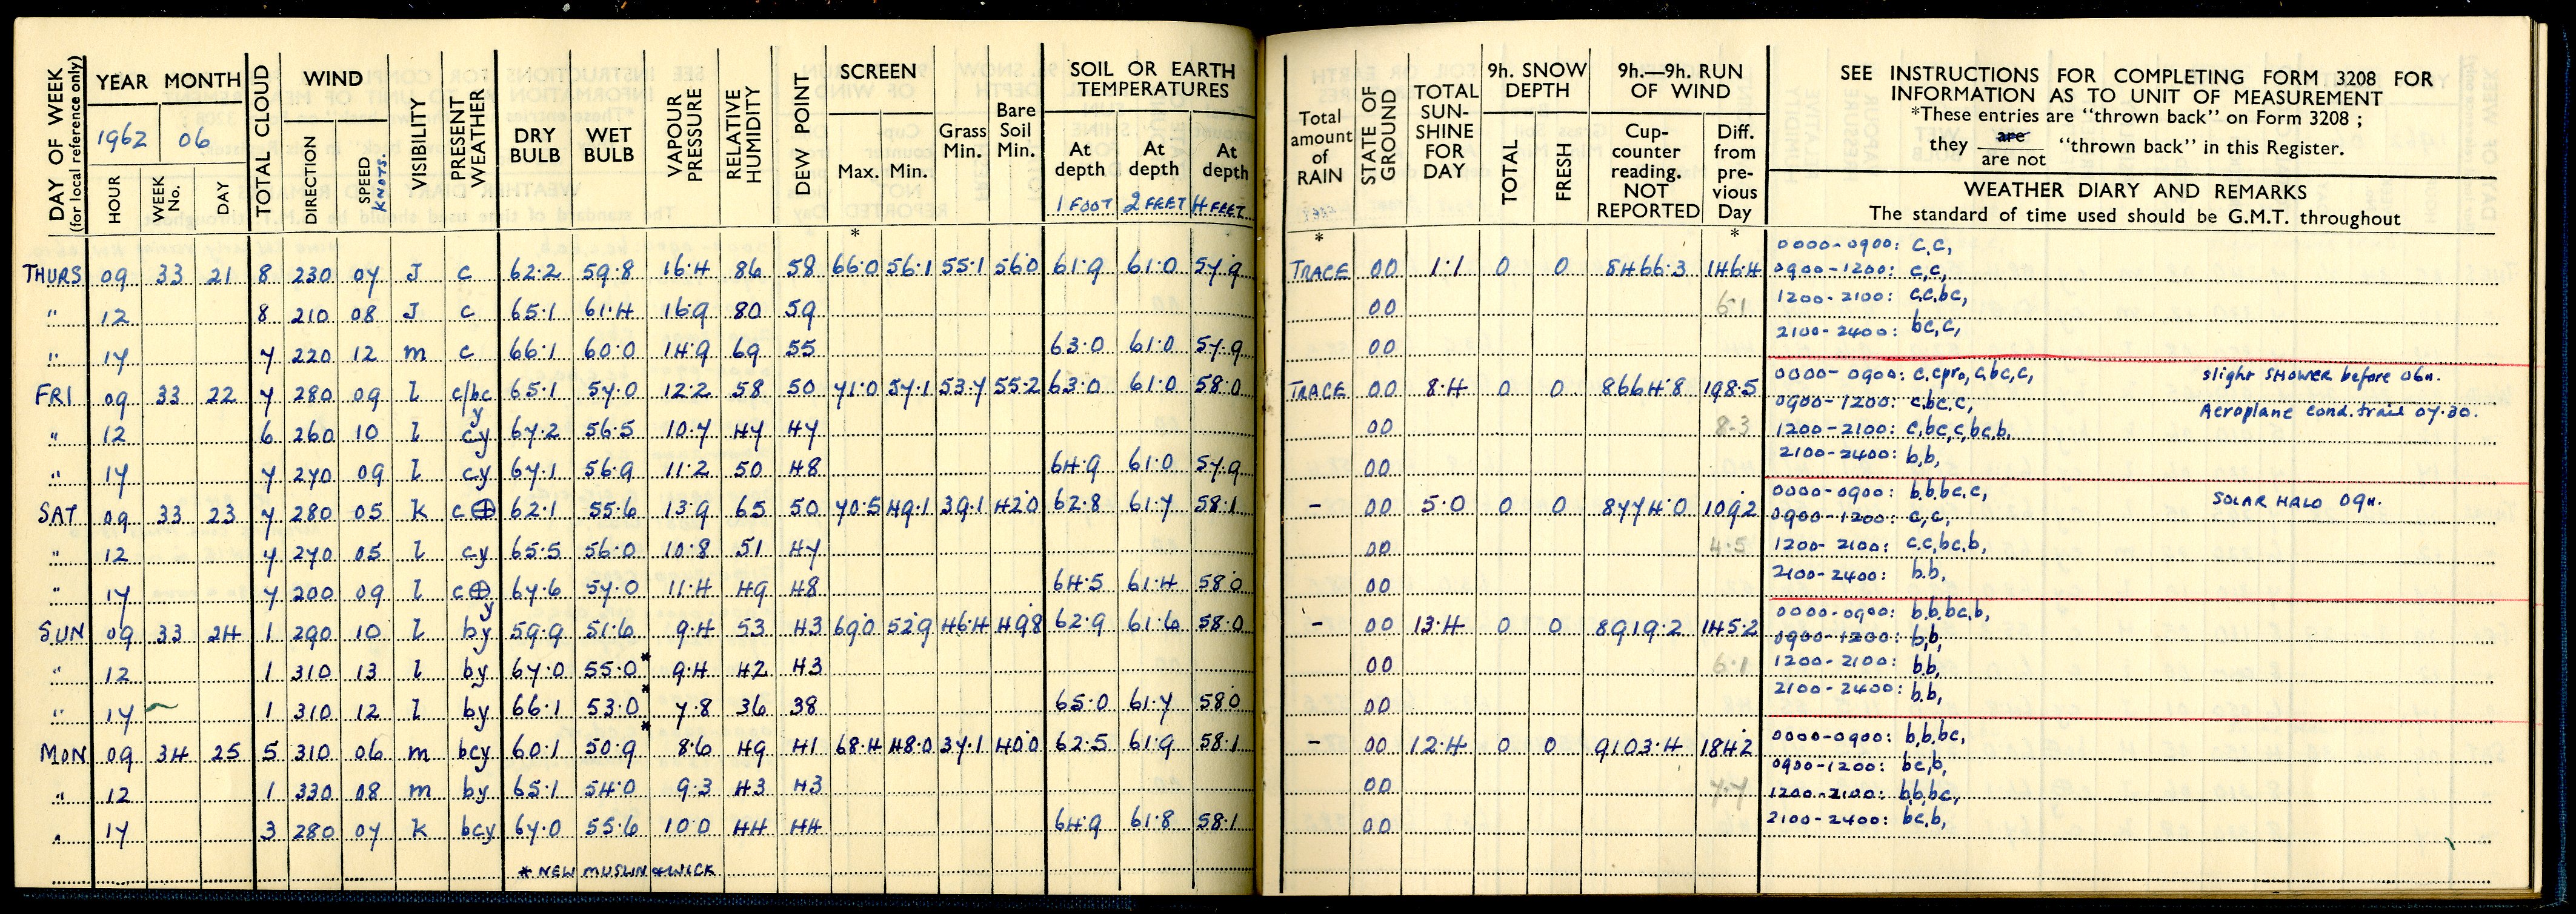 DAY OF WEEK
(for local reference only)
YEAR MONTH
1962 06
HOUR
WEEK No.
DAY
TOTAL CLOUD
WIND
DIRECTION
SPEED
KNOTS.
VISIBILITY
PRESENT WEATHER
DRY BULB
WET BULB
VAPOUR PRESSURE
RELATIVE HUMIDITY
DEW POINT
SCREEN
Max. Min.
*
Grass Min.
Bare Soil Min.
SOIL OR EARTH TEMPERATURES
At depth At depth At depth
1 FOOT 2 FEET 4 FEET
Total amount of RAIN
*
STATE OF GROUND
TOTAL SUN-SHINE FOR DAY
9h. SNOW DEPTH
TOTAL
FRESH
9h.—9h. RUN OF WIND
Cup-counter reading. NOT REPORTED
Diff. from pre-vious Day
*
SEE INSTRUCTIONS FOR COMPLETING FORM 3208 FOR
INFORMATION AS TO UNIT OF MEASUREMENT
*These entries are "thrown back" on Form 3208 ;
they are / are not "thrown back" in this Register.
WEATHER DIARY AND REMARKS
The standard of time used should be G.M.T. throughout
THURS 09 33 21 8 230 07 J c 62.2 59.8 16.4 86 58 66.0 56.1 55.1 56.0 61.9 61.0 57.9 TRACE 00 1.1 0 0 8466.3 146.4
0000-0900: c,c,
0900-1200: c,c,
" 12 8 210 08 J c 65.1 61.4 16.9 80 59 00 6.1
1200-2100: c,c,bc,
2100-2400: bc,c,
" 17 7 220 12 m c 66.1 60.0 14.9 69 55 63.0 61.0 57.9 00
FRI 09 33 22 7 280 09 l c/bc y 65.1 57.0 12.2 58 50 71.0 57.1 53.7 55.2 63.0 61.0 58.0 TRACE 00 8.4 0 0 8664.8 198.5
0000-0900: c,cpro,c,bc,c, slight SHOWER before 06h.
0900-1200: c,bc,c, Aeroplane cond. trail 07.30.
" 12 6 260 10 l cy 67.2 56.5 10.7 47 47 00 8.3
1200-2100: c,bc,c,bc,b,
2100-2400: b,b,
" 17 7 270 09 l cy 67.1 56.9 11.2 50 48 64.9 61.0 57.9 00
SAT 09 33 23 7 280 05 k c⊕ 62.1 55.6 13.9 65 50 70.5 49.1 39.1 42.0 62.8 61.7 58.1 - 00 5.0 0 0 8774.0 109.2
0000-0900: b,b,bc,c, SOLAR HALO 09h.
0900-1200: c,c,
" 12 7 270 05 l cy 65.5 56.0 10.8 51 47 00 4.5
1200-2100: c,c,bc,b,
2100-2400: b,b,
" 17 7 200 09 l c⊕ y 67.6 57.0 11.4 49 48 64.5 61.4 58.0 00
SUN 09 33 24 1 290 10 l by 59.9 51.6 9.4 53 43 69.0 52.9 46.4 49.8 62.9 61.6 58.0 - 00 13.4 0 0 8919.2 145.2
0000-0900: b,b,bc,b,
0900-1200: b,b,
" 12 1 310 13 l by 67.0 55.0* 9.4 42 43 00 6.1
1200-2100: b,b,
2100-2400: b,b,
" 17 1 310 12 l by 66.1 53.0* 7.8 36 38 65.0 61.7 58.0 00
MON 09 34 25 5 310 06 m bcy 60.1 50.9* 8.6 49 41 68.4 48.0 37.1 40.0 62.5 61.9 58.1 - 00 12.4 0 0 9103.4 184.2
0000-0900: b,b,bc,
0900-1200: bc,b,
" 12 1 330 08 m by 65.1 54.0 9.3 43 43 00 7.7
1200-2100: b,b,bc,
2100-2400: bc,b,
" 17 3 280 07 k bcy 67.0 55.6 10.0 44 44 64.9 61.8 58.1 00
* NEW MUSLIN & WICK